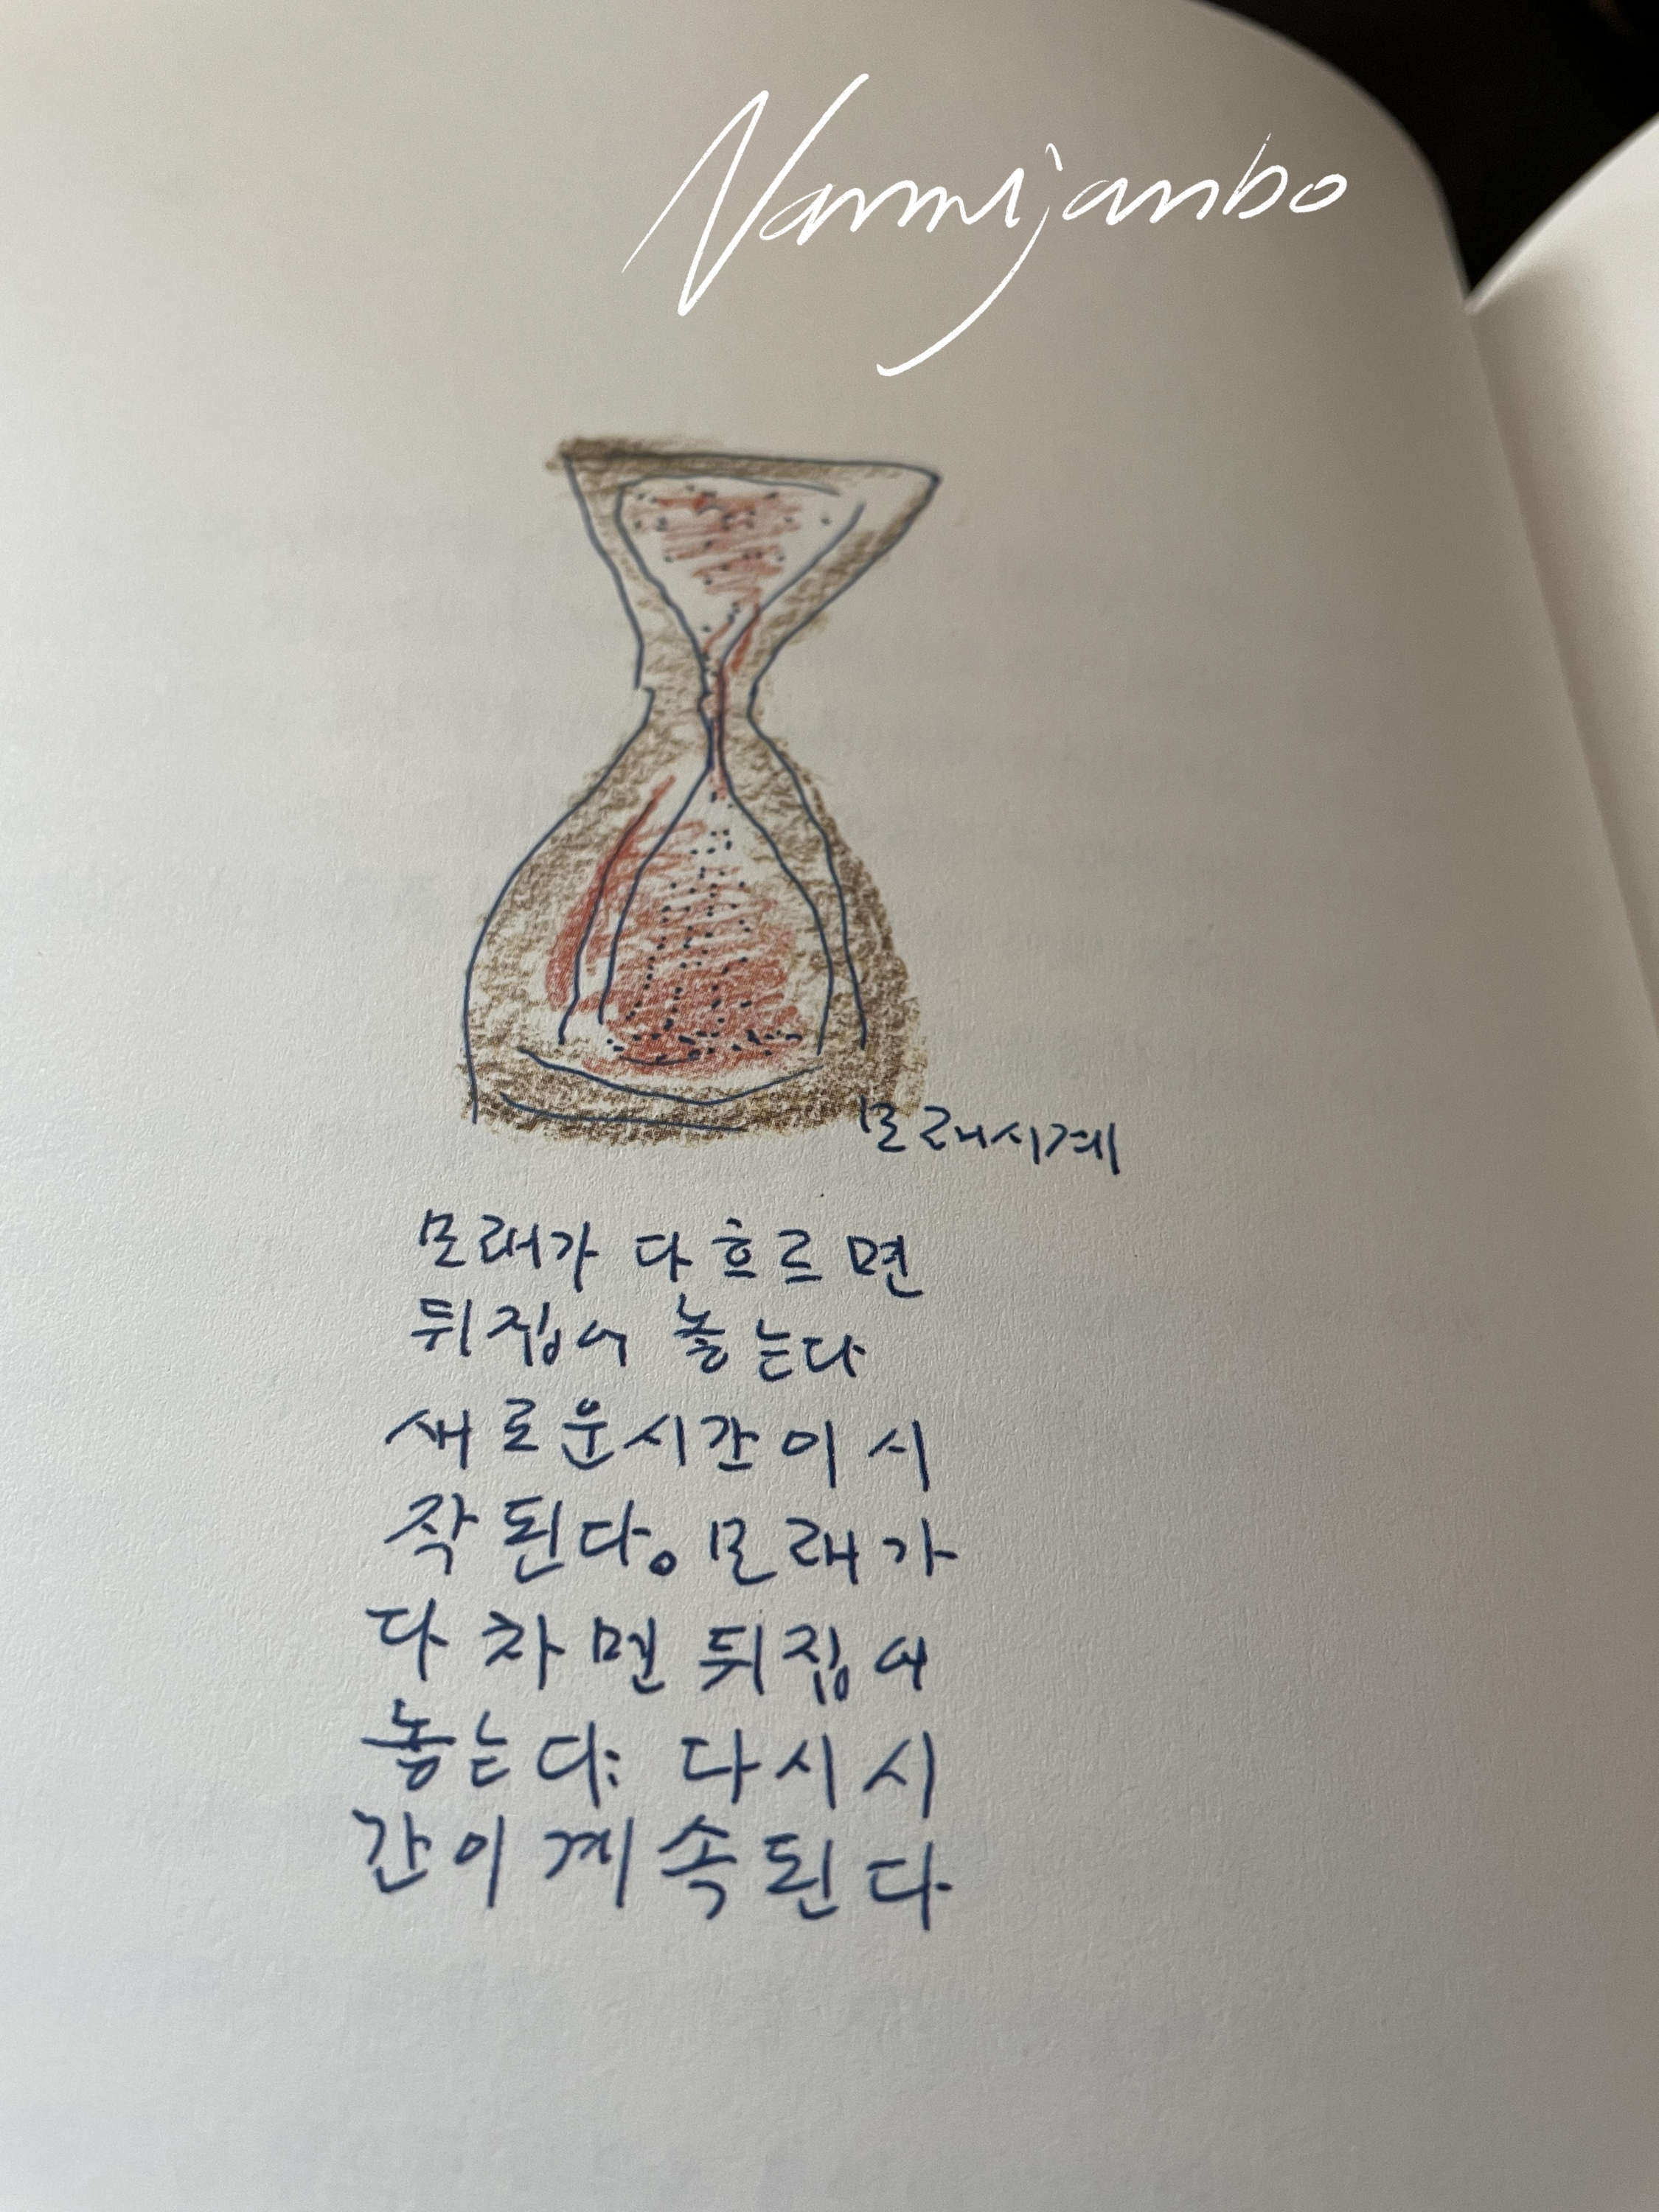 Nammijanbo
모래시계
모래가 다 흐르면
뒤집어 놓는다
새로운시간이 시
작된다。모래가
다 차면 뒤집어
놓는다: 다시 시
간이 계속된다